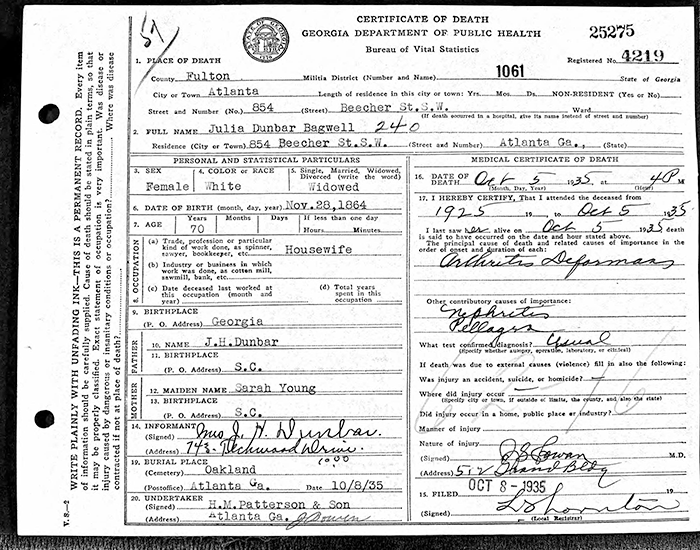 CERTIFICATE OF DEATH
GEORGIA DEPARTMENT OF PUBLIC HEALTH
Bureau of Vital Statistics
25275
Registered No. 4219
57
1. PLACE OF DEATH
County Fulton Militia District (Number and Name) 1061 State of Georgia
City or Town Atlanta Length of residence in this city or town: Yrs. Mos. Ds. NON-RESIDENT (Yes or No)
Street and Number (No.) 854 (Street) Beecher St.S.W. Ward
(If death occurred in a hospital, give its name instead of street and number)
2. FULL NAME Julia Dunbar Bagwell 240
Residence (City or Town) 854 Beecher St.S.W. (Street and Number) Atlanta Ga., (State)
PERSONAL AND STATISTICAL PARTICULARS
3. SEX Female
4. COLOR OR RACE White
5. Single, Married, Widowed, Divorced (write the word) Widowed
6. DATE OF BIRTH (month, day, year) Nov.28,1864
7. AGE Years 70 Months Days If less than one day Hours Minutes
8. OCCUPATION
(a) Trade, profession or particular kind of work done, as spinner, sawyer, bookkeeper, etc. Housewife
(b) Industry or business in which work was done, as cotton mill, sawmill, bank, etc.
(c) Date deceased last worked at this occupation (month and year)
(d) Total years spent in this occupation
9. BIRTHPLACE
(P. O. Address) Georgia
FATHER
10. NAME J.H.Dunbar
11. BIRTHPLACE
(P. O. Address) S.C.
MOTHER
12. MAIDEN NAME Sarah Young
13. BIRTHPLACE
(P. O. Address) S.C.
14. INFORMANT
(Signed) Mrs J. H. Dunbar
(Address) Drive.
19. BURIAL PLACE
(Cemetery) Oakland
(Postoffice) Atlanta Ga. Date 10/8/35
20. UNDERTAKER
(Signed) H.M.Patterson & Son
(Address) Atlanta Ga.
MEDICAL CERTIFICATE OF DEATH
16. DATE OF DEATH Oct 5 1935 at 4P M
(Month, Day, Year) (Hour)
17. I HEREBY CERTIFY, That I attended the deceased from
1925 19 , to Oct 5 1935
I last saw her alive on Oct 5 1935 death
is said to have occurred on the date and hour stated above.
The principal cause of death and related causes of importance in the
order of onset and duration of each:
Arthritis Deformans
Other contributory causes of importance:
Nephritis
Pellagra
What test confirmed diagnosis? Usual
(Specify whether autopsy, operation, laboratory, or clinical)
If death was due to external causes (violence) fill in also the following:
Was injury an accident, suicide, or homicide?
Where did injury occur
(Specify city or town, if outside of limits, the county, and also the state)
Did injury occur in a home, public place or industry?
Manner of injury
Nature of injury
(Signed) M.D.
(Address) 512 Grand Bldg
15. FILED OCT 8-1935 19
(Signed)
(Local Registrar)
V. S.—2 WRITE PLAINLY WITH UNFADING INK—THIS IS A PERMANENT RECORD. Every item
of information should be carefully supplied. Cause of death should be stated in plain terms, so that
it may be properly classified. Exact statement of occupation is very important. Was disease or
injury caused by dangerous or insanitary conditions or occupation? Where was disease
contracted if not at place of death?